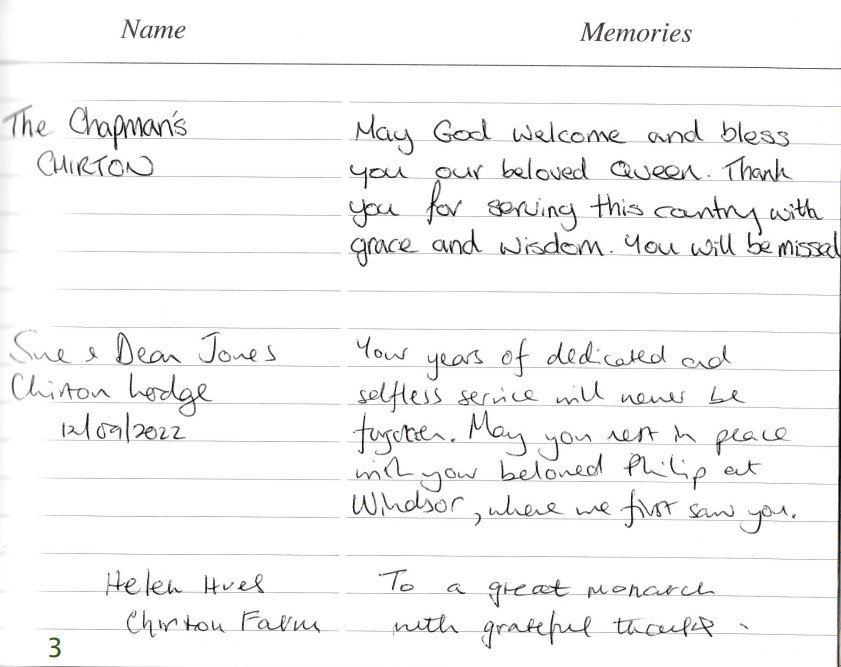 Name Memories
The Chapman's
CHIRTON
May God welcome and bless
you our beloved Queen. Thank
you for serving this country with
grace and wisdom. You will be missed
Sue & Dean Jones
Chirton Lodge
12/09/2022
Your years of dedicated and
selfless service will never be
forgotten. May you rest in peace
with your beloved Philip at
Windsor, where we first saw you.
Helen
Chirton Farm
To a great monarch
with grateful thanks.
3